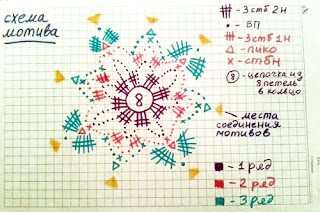 схема
мотива
- 3 стб 2Н
- ВП
- 3 стб 1Н
- пико
- стбН
8 - цепочка из
8 петель
в кольцо
8
- места
соединения
мотивов
- 1 ряд
- 2 ряд
- 3 ряд